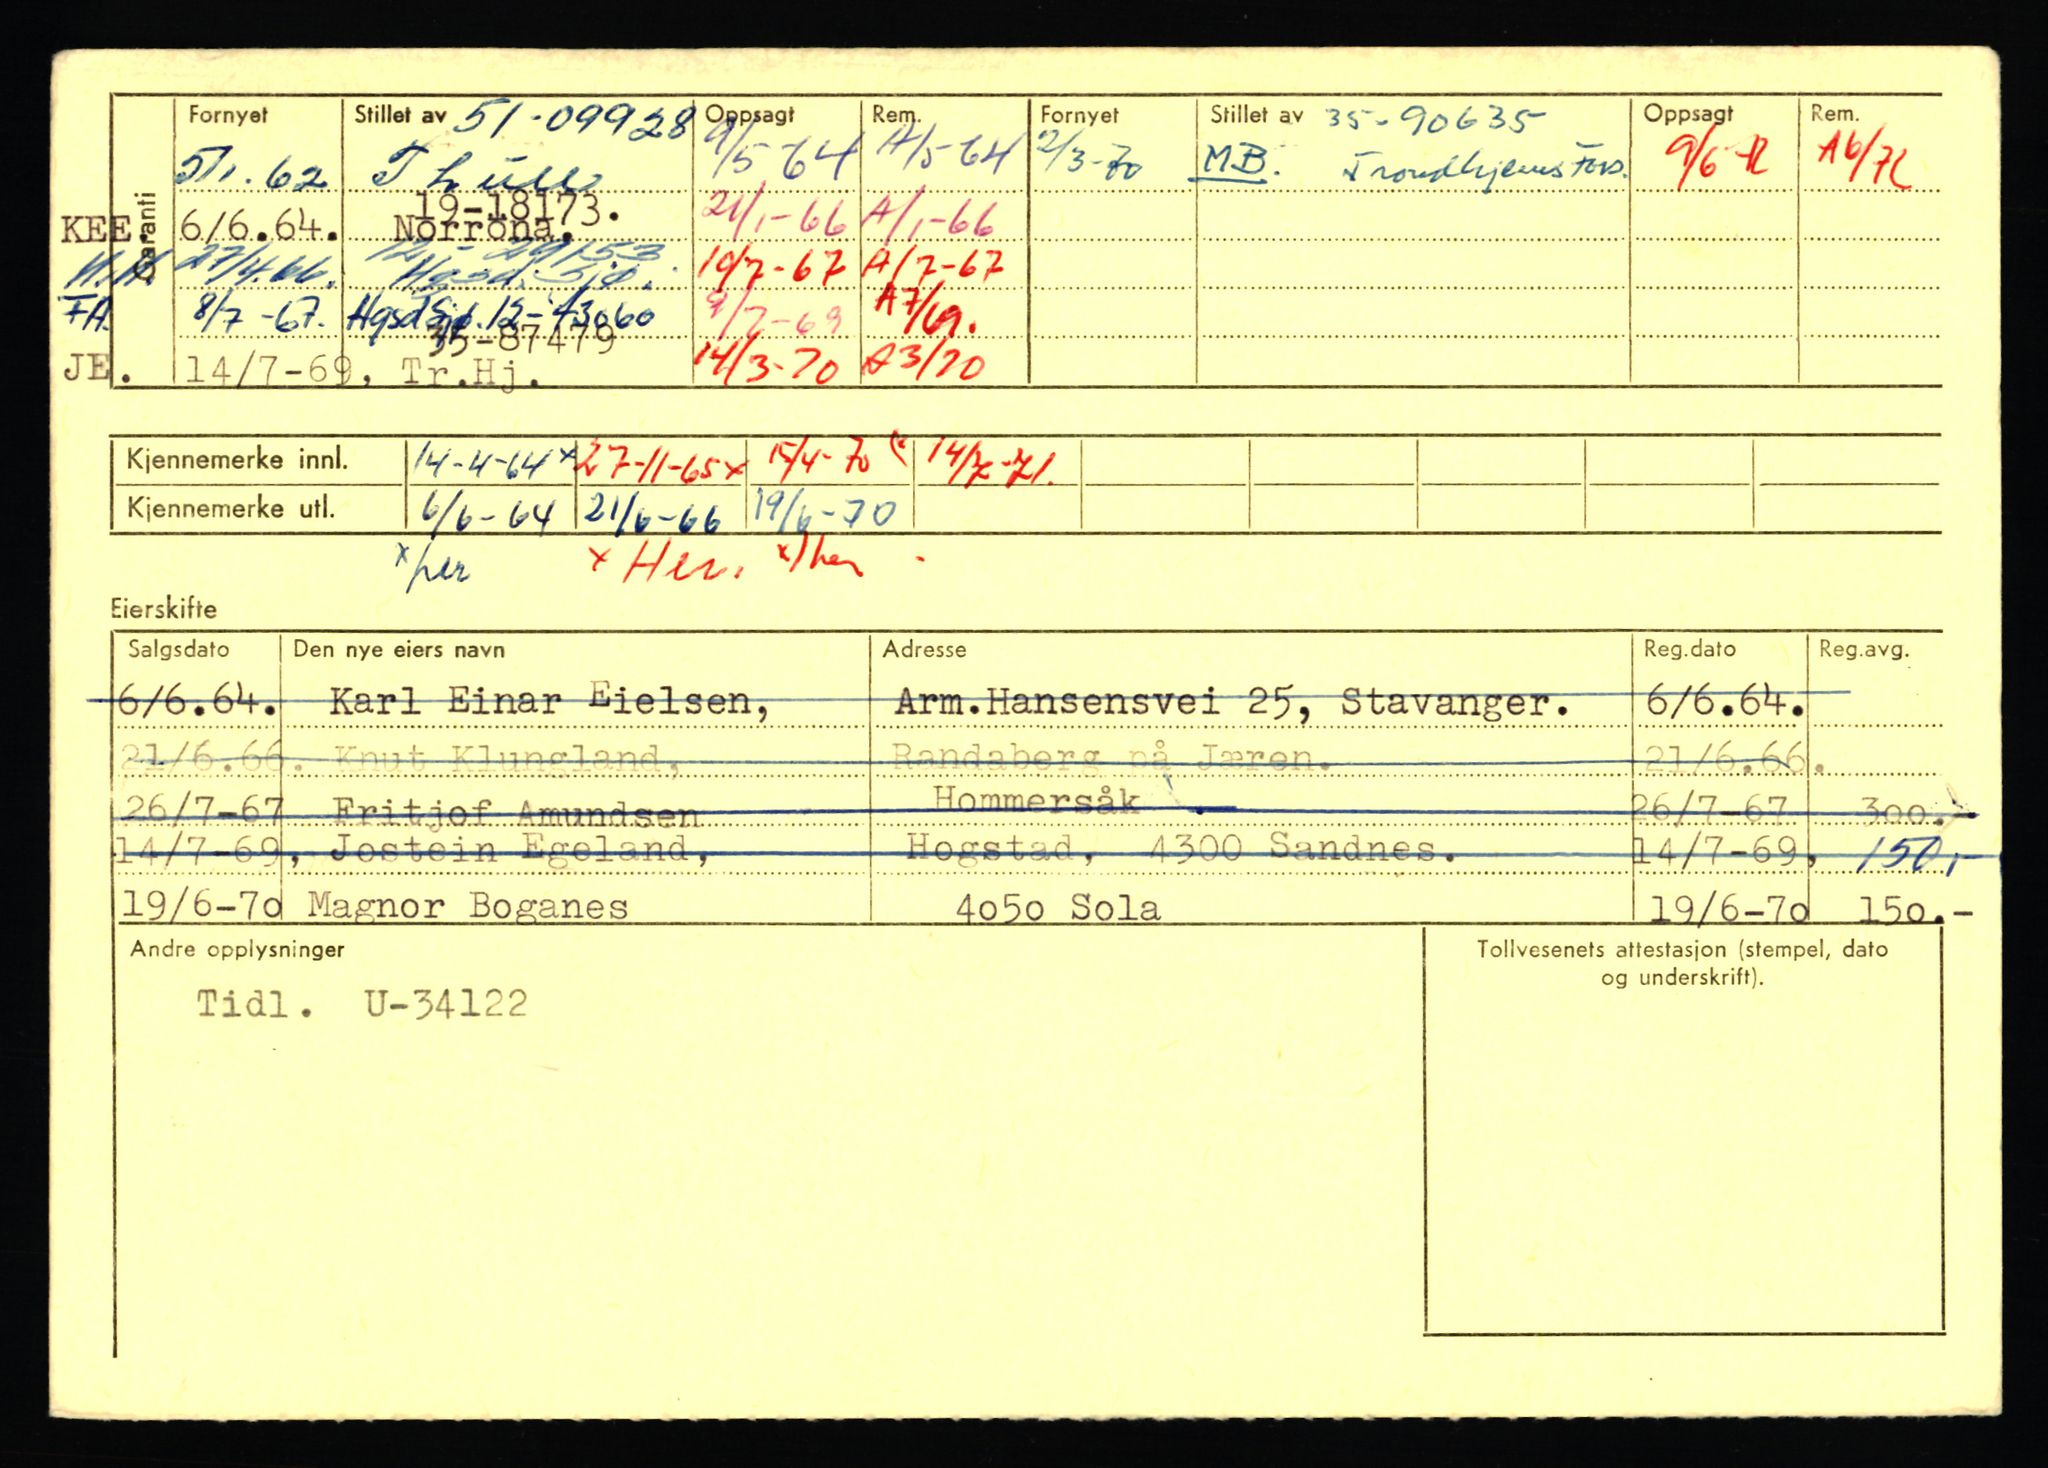 Fornyet Stillet av 51-09928 Oppsagt Rem. Fornyet Stillet av 35-90635 Oppsagt Rem.
Garanti
5/1.62 9/5-64 A/5-64 2/3-70 M.B. Trondhjems Fors. 9/6-72 A6/72
19-18173.
KEE. 6/6.64. Norrøna. 21/1-66 A/1-66
27/4.66. Hgsd. Sjø. 19/7-67 A/7-67
FA. 8/7-67. Hgsd Sjø. 12-43060 9/7-69 A7/69.
35-87479
JE. 14/7-69, Tr.Hj. 14/3-70 A3/70
Kjennemerke innl. 14-4-64 x 27-11-65 x 15/4-70 14/7-71.
Kjennemerke utl. 6/6-64 21/6-66 19/6-70
x/her x Her. x/her
Eierskifte
Salgsdato Den nye eiers navn Adresse Reg.dato Reg.avg.
6/6.64. Karl Einar Eielsen, Arm.Hansensvei 25, Stavanger. 6/6.64.
21/6.66. Knut Klungland, Randaberg på Jæren. 21/6.66.
26/7-67 Fritjof Amundsen Hommersåk 26/7-67 300.-
14/7-69, Jostein Egeland, Hogstad, 4300 Sandnes. 14/7-69, 150,-
19/6-70 Magnor Boganes 4050 Sola 19/6-70 150.-
Andre opplysninger
Tollvesenets attestasjon (stempel, dato
og underskrift).
Tidl. U-34122